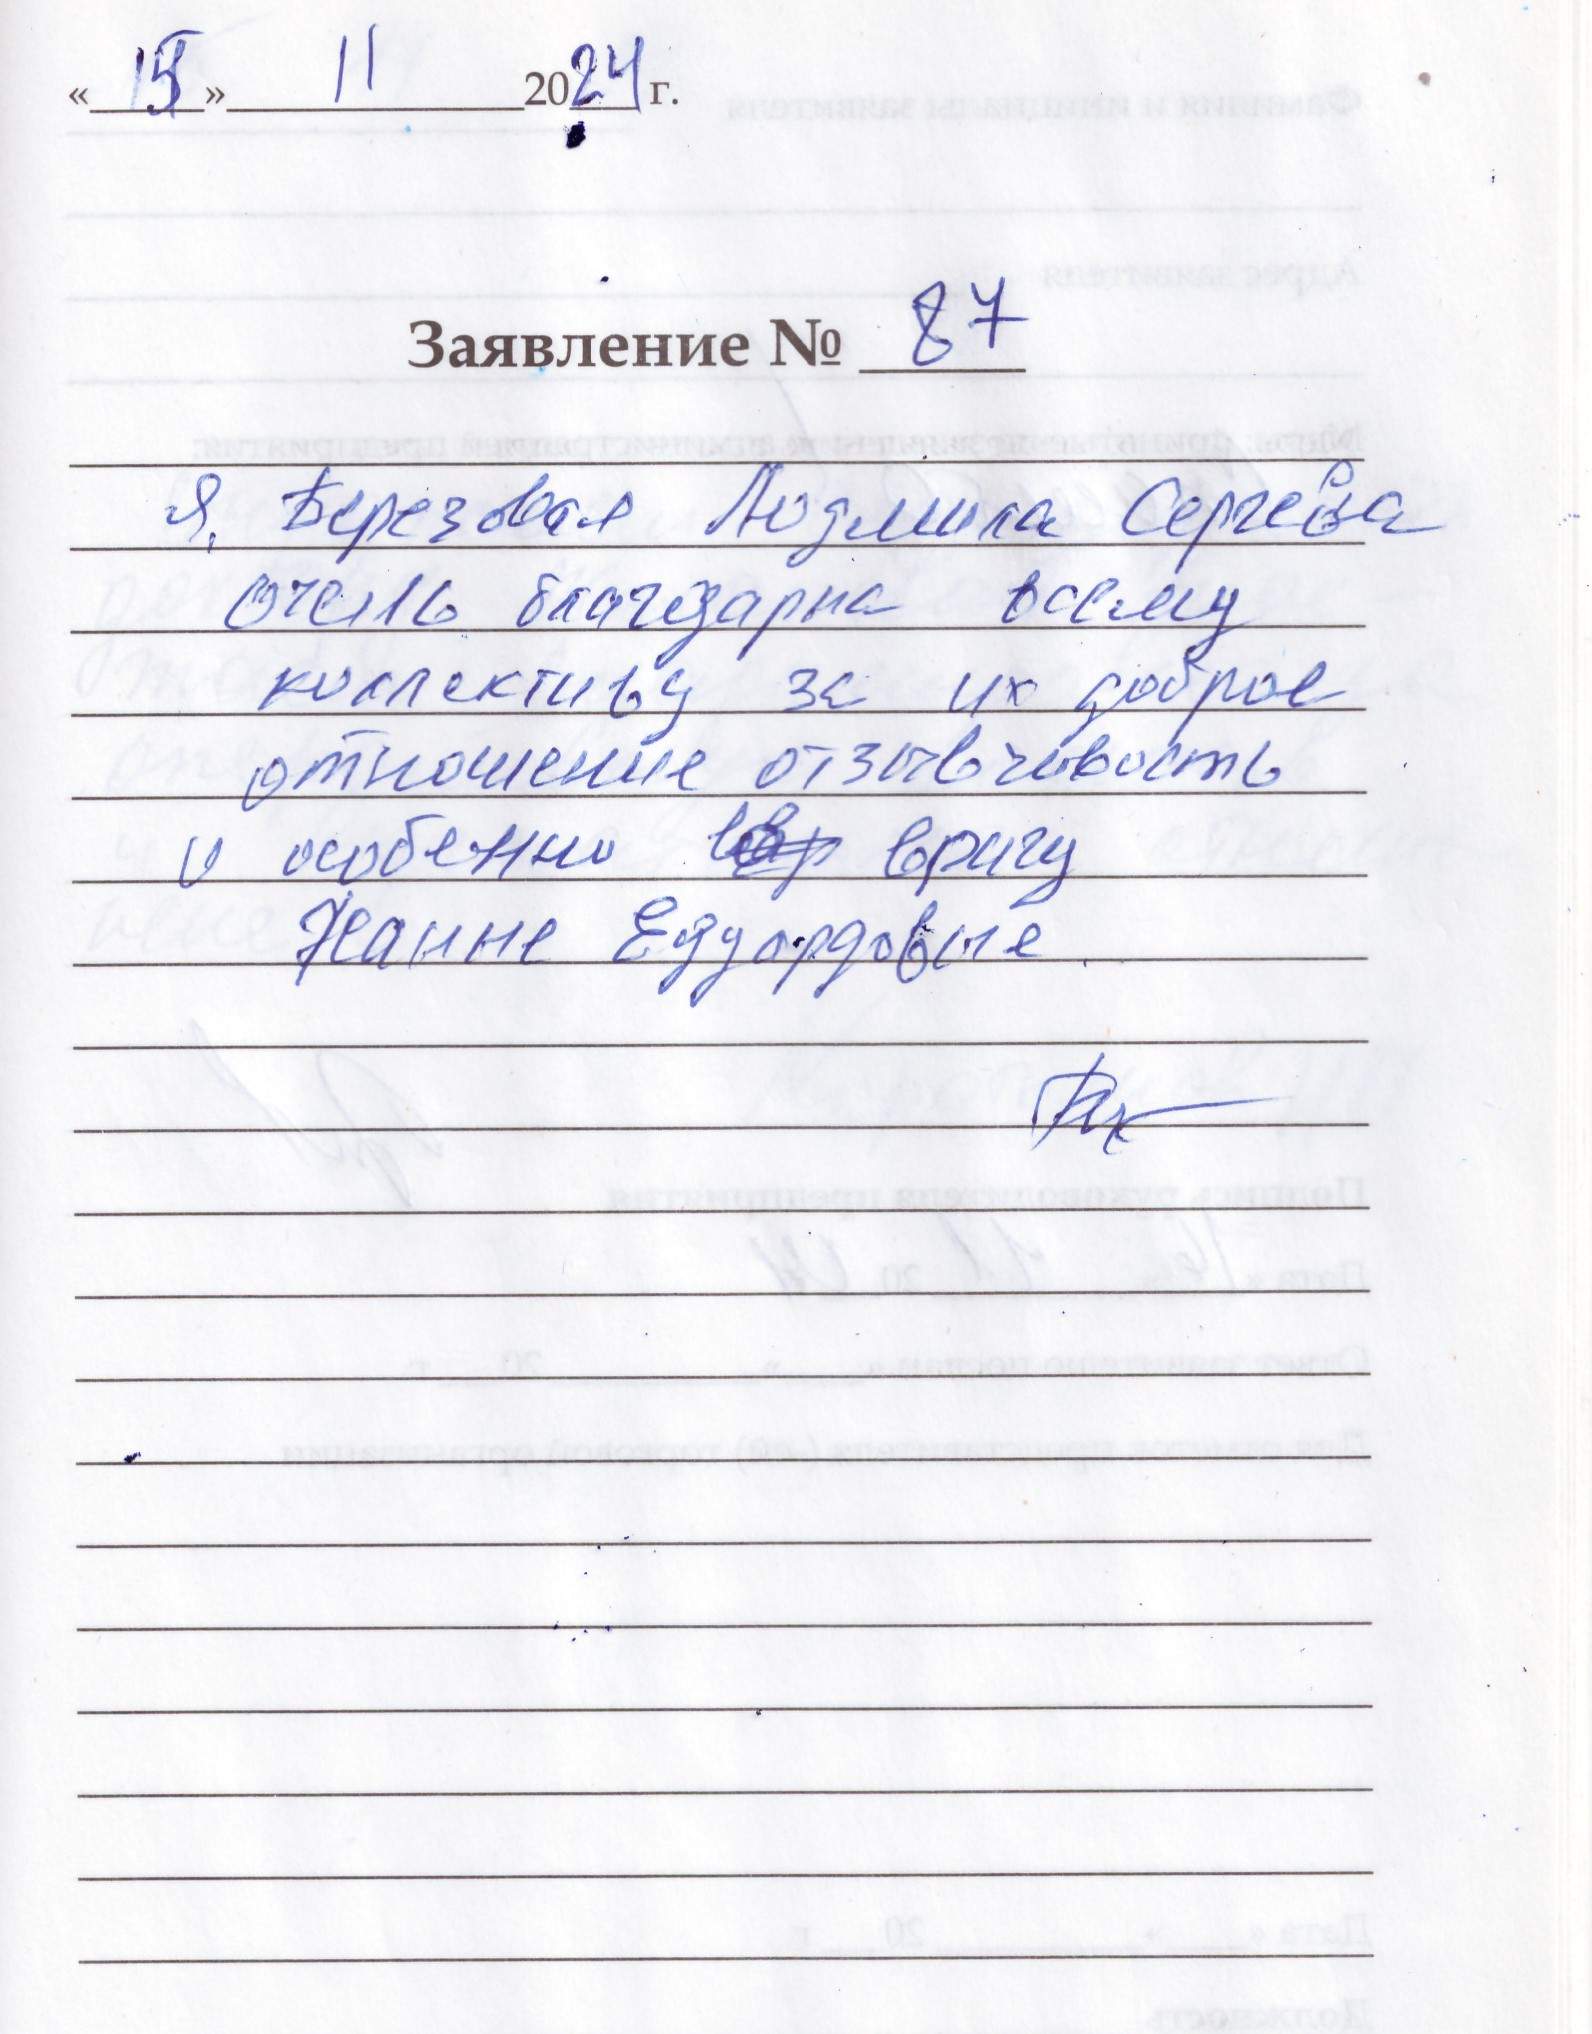 «15» 11 2024 г.
Заявление № 87
Я, Березовая Людмила Сергевна
очень благодарна всему
коллективу за их доброе
отношение отзывчивость
и особенно врачу
Жанне Едуардовне